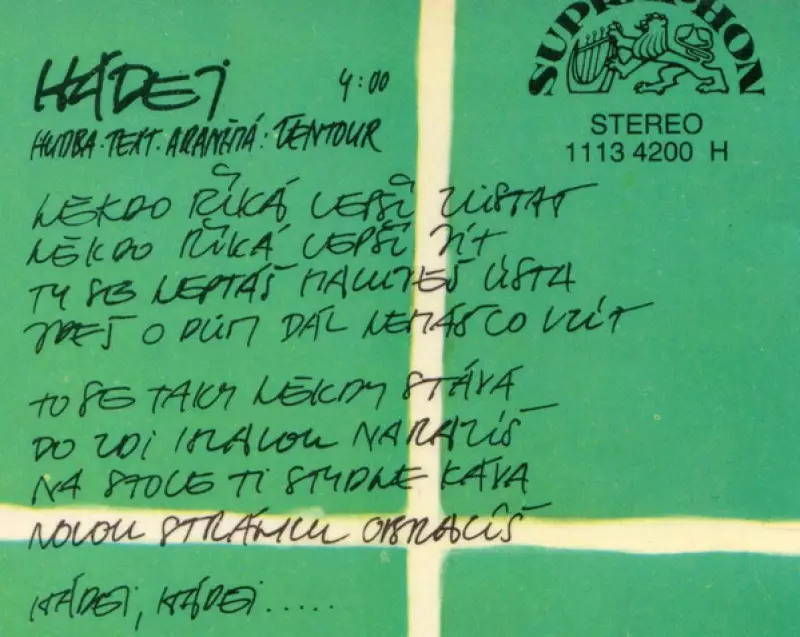 SUPRAPHON
STEREO
1113 4200 H
HÁDEJ 4:00
HUDBA·TEXT·ARANŽMÁ: ŽENTOUR
NĚKDO ŘÍKÁ LEPŠÍ ZŮSTAT
NĚKDO ŘÍKÁ LEPŠÍ JÍT
TY SE NEPTÁŠ MALUJEŠ ÚSTA
JDEŠ O DŮM DÁL NEMÁŠ CO VZÍT
TO SE TAKY NĚKDY STÁVÁ
DO ZDI HLAVOU NARAZÍŠ
NA STOLE TI STYDNE KÁVA
NOVOU STRÁNKU OBRACÍŠ
HÁDEJ, HÁDEJ.....